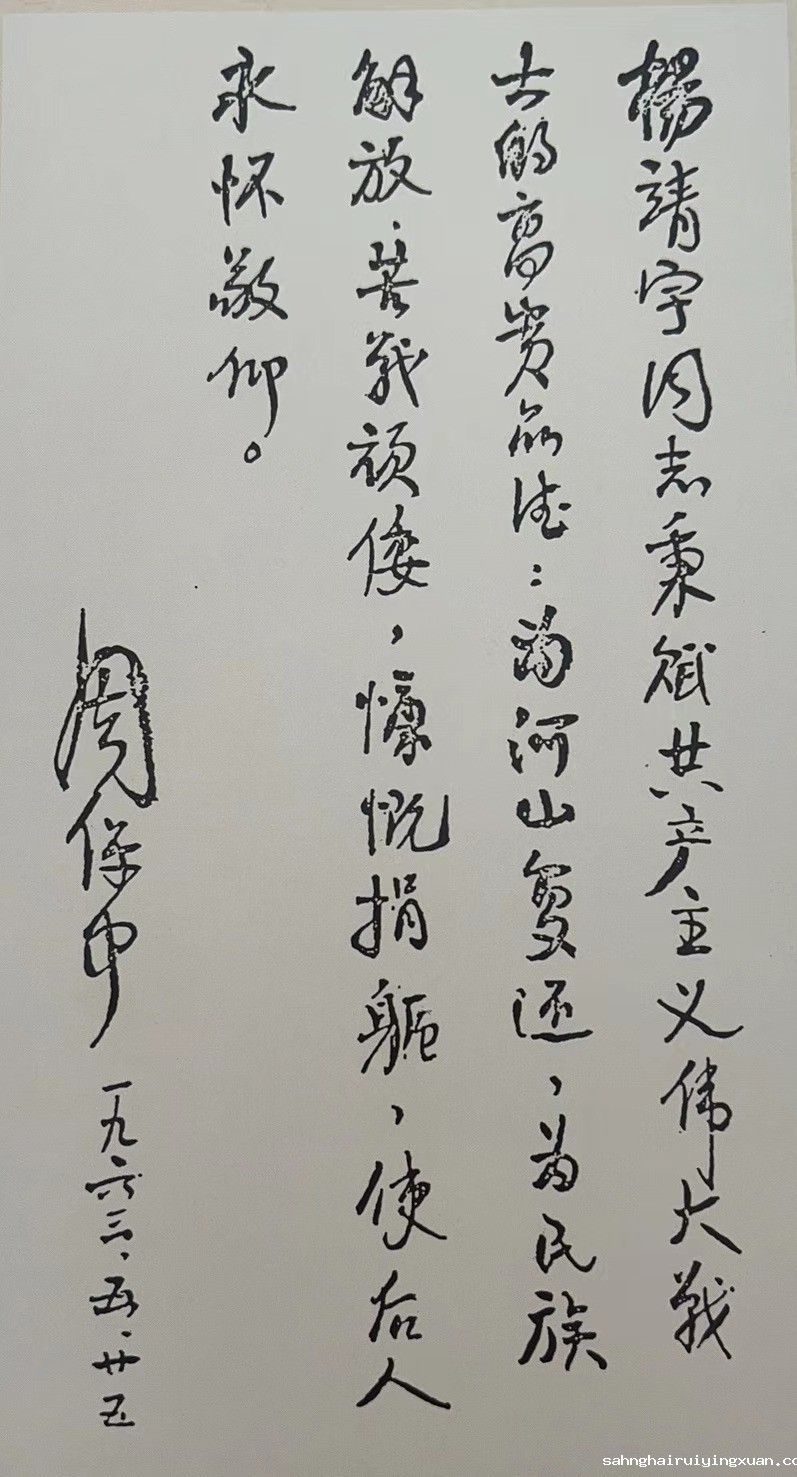 楊靖宇同志秉赋共产主义伟大战
士的高贵品德：为河山复还，为民族
解放，苦战顽倭，慷慨捐躯，使后人
永怀敬仰。
周保中 一九六三、五、廿五
sahnghairuiyingxuan.co